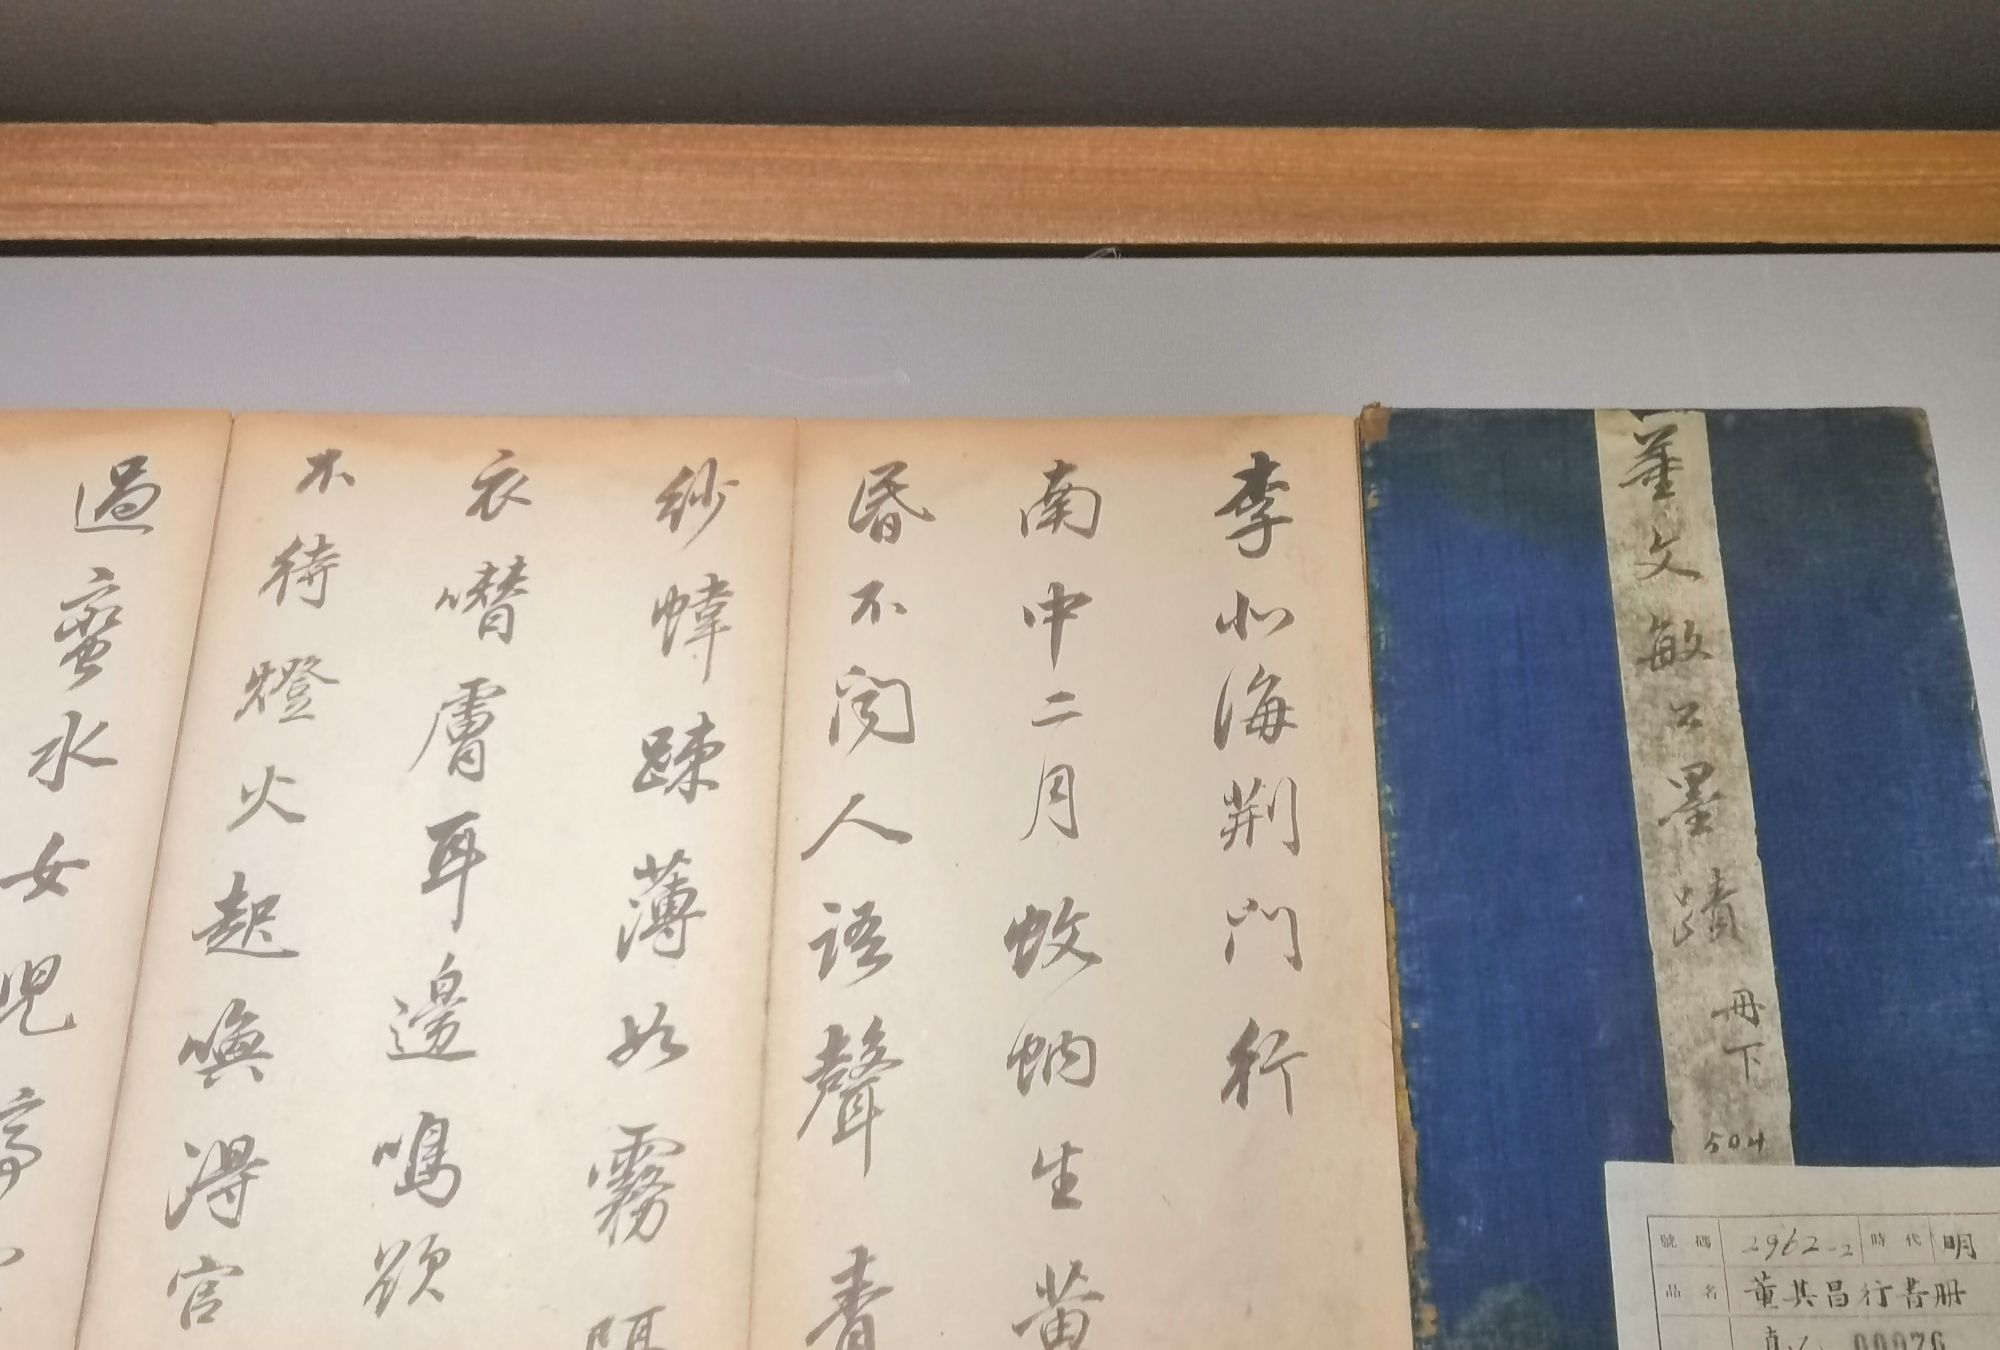 董文敏公墨蹟 冊下
504
號碼 2962-2 時代 明
品名 董其昌行書册
00976
李北海荆門行
南中二月蚊蚋生黄
昏不聞人語聲青
紗幃踈薄如霧隔
衣噆膚耳邊鳴欲
不待燈火起喚得官
過蠻水女兒